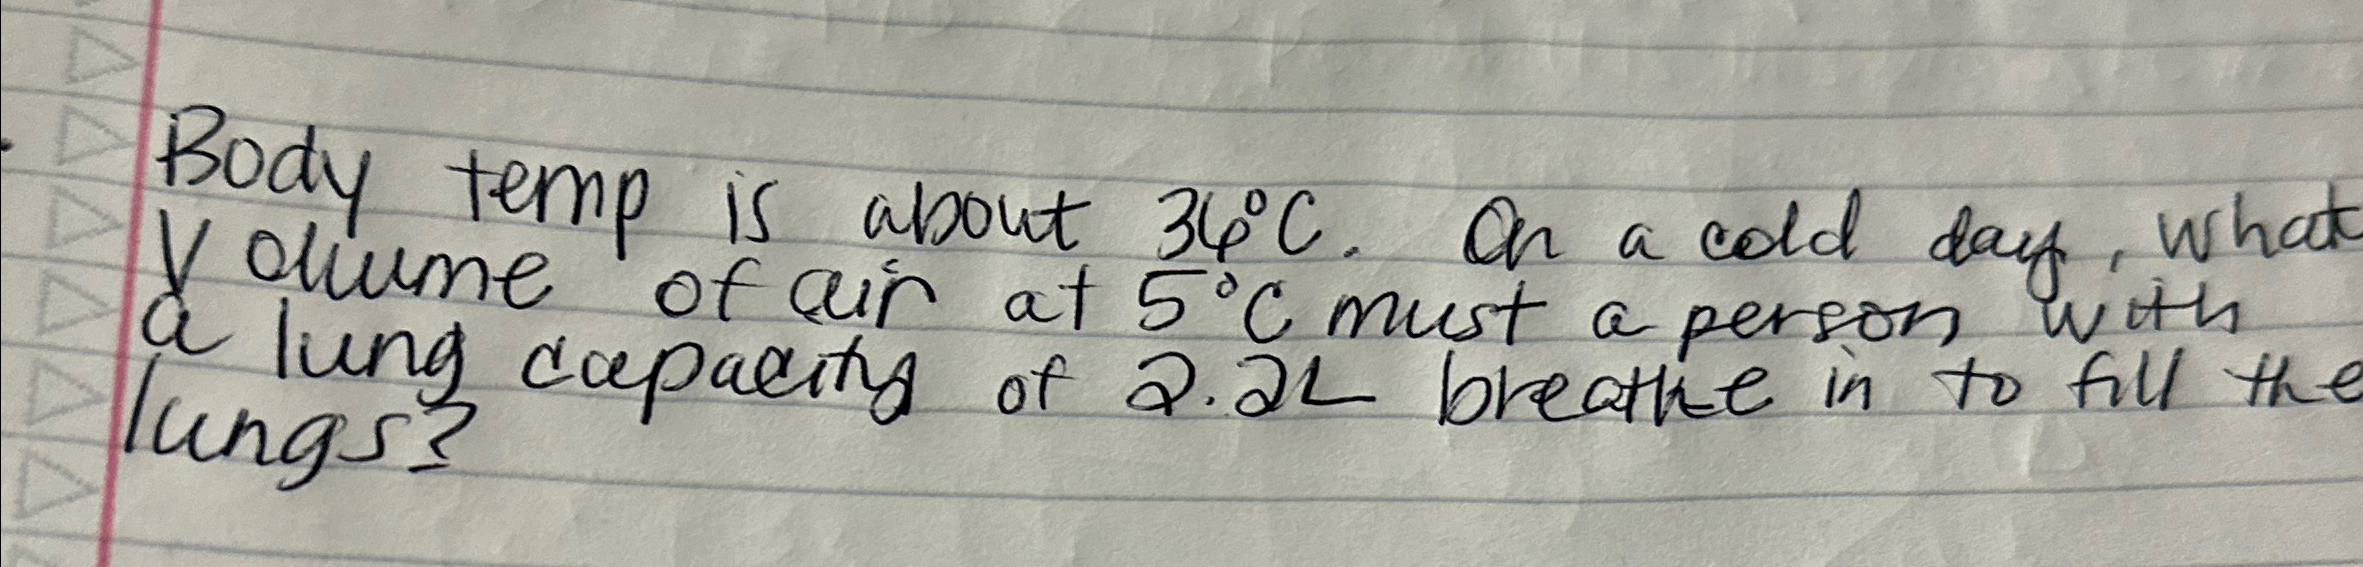 Body temp is about 36°C. On a cold day, what
Volume of air at 5°C must a person with
a lung capacity of 2.2L breathe in to fill the
lungs?